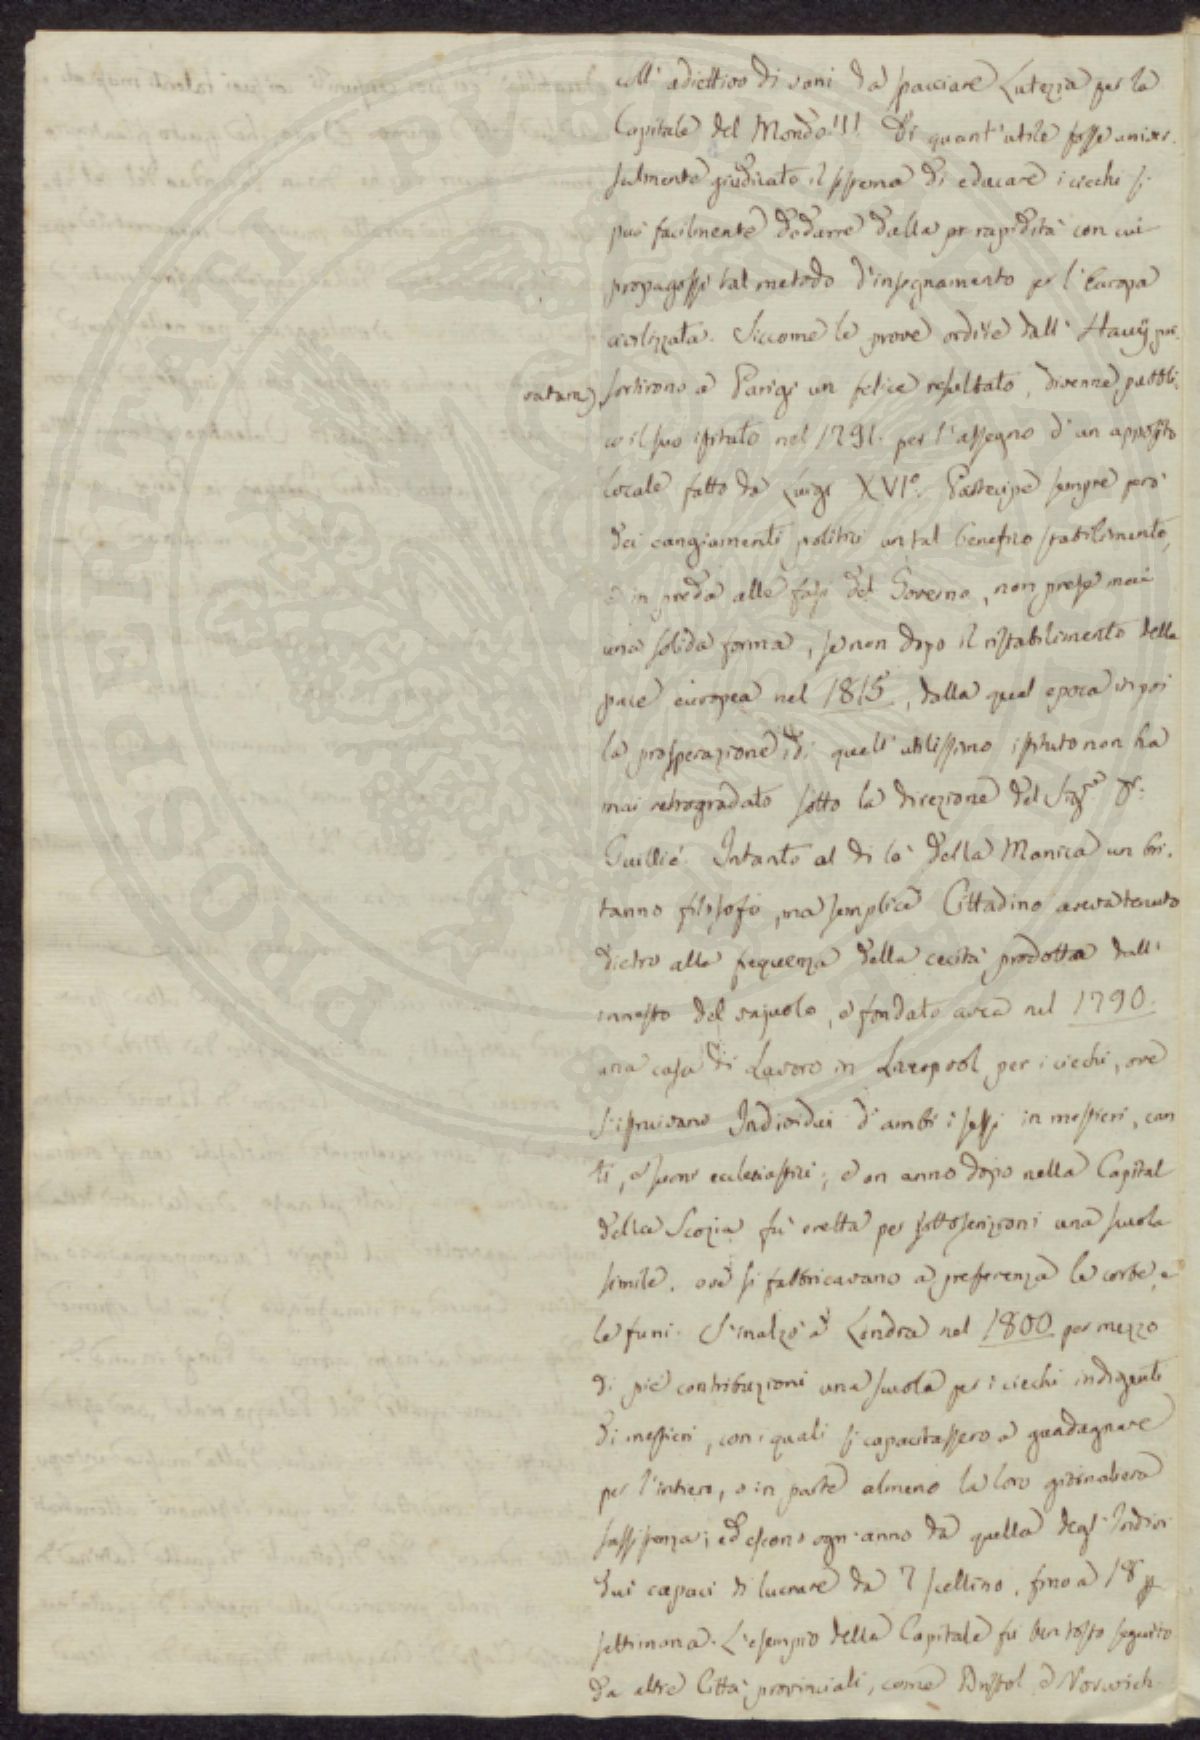 coll' adiettivo di vani da spacciare Lutezia per la
Capitale del Mondo!!! Di quant' utile fosse univer.
salmente giudicato il sistema di educare i ciechi si
può facilmente dedurre dalla rapidità con cui
propagossi tal metodo d'insegnamento per l'Europa
civilizzata. Siccome le prove ordite dall' Hauÿ pri.
vatam.e sortirono a Parigi un felice resultato, divenne pubbli.
co il suo istituto nel 1791. per l'assegno d'un apposito
locale fatto da Luigi XVI.° Partecipe sempre però
dei cangiamenti politici un tal benefico stabilimento,
e in preda alle fasi del Governo, non prese mai
una solida forma, se non dopo il ristabilimento della
pace europea nel 1815, dalla qual epoca in poi
la prosperazione di quell' utilissimo istituto non ha
mai retrogradato sotto la direzione del Sig.re D.r
Guillié. Intanto al di là della Manica un bri.
tanno filosofo, ma semplice Cittadino aveva tenuto
dietro alla frequenza della cecità prodotta dall'
innesto del vajuolo, e fondato avea nel 1790.
una casa di Lavoro in Liverpool per i ciechi, ove
s'istruivano Individui d'ambi i sessi in mestieri, can
ti, e suoni ecclesiastici; e un anno dopo nella Capital
della Scozia fù eretta per sottoscrizioni una scuola
simile, ove si fabbricavano a preferenza le corbe, e
le funi. S'inalzò a Londra nel 1800 per mezzo
di pie contribuzioni una scuola per i ciechi indigenti
di mestieri, con i quali si capacitassero a guadagnare
per l'intiero, o in parte almeno la loro giornaliera
sussistenza; ed escono ogni anno da quella degl' Indivi
dui capaci di lucrare da 7 scellino, fino a 18 p.
settimana. L'esempio della Capitale fù ben tosto seguito
da altre Città provinciali, come Bristol e Norwich